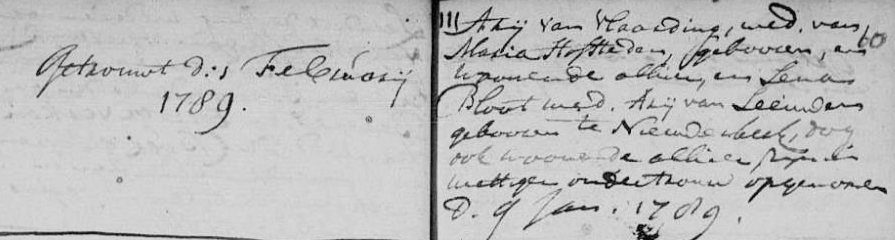 Getrouwt d: 1 Februarij
1789.
111 Arij van Vlaarding, wed. van
60
Maria Hofheden, gebooren, en
woonende alhier, en Lena
Bloot wed. Arij van Leeuwden
gebooren te Nieuwderkerk, dog
ook woonende alhier zijn in
wettigen ondertrouw opgenomen
d. 9 Jan. 1789.